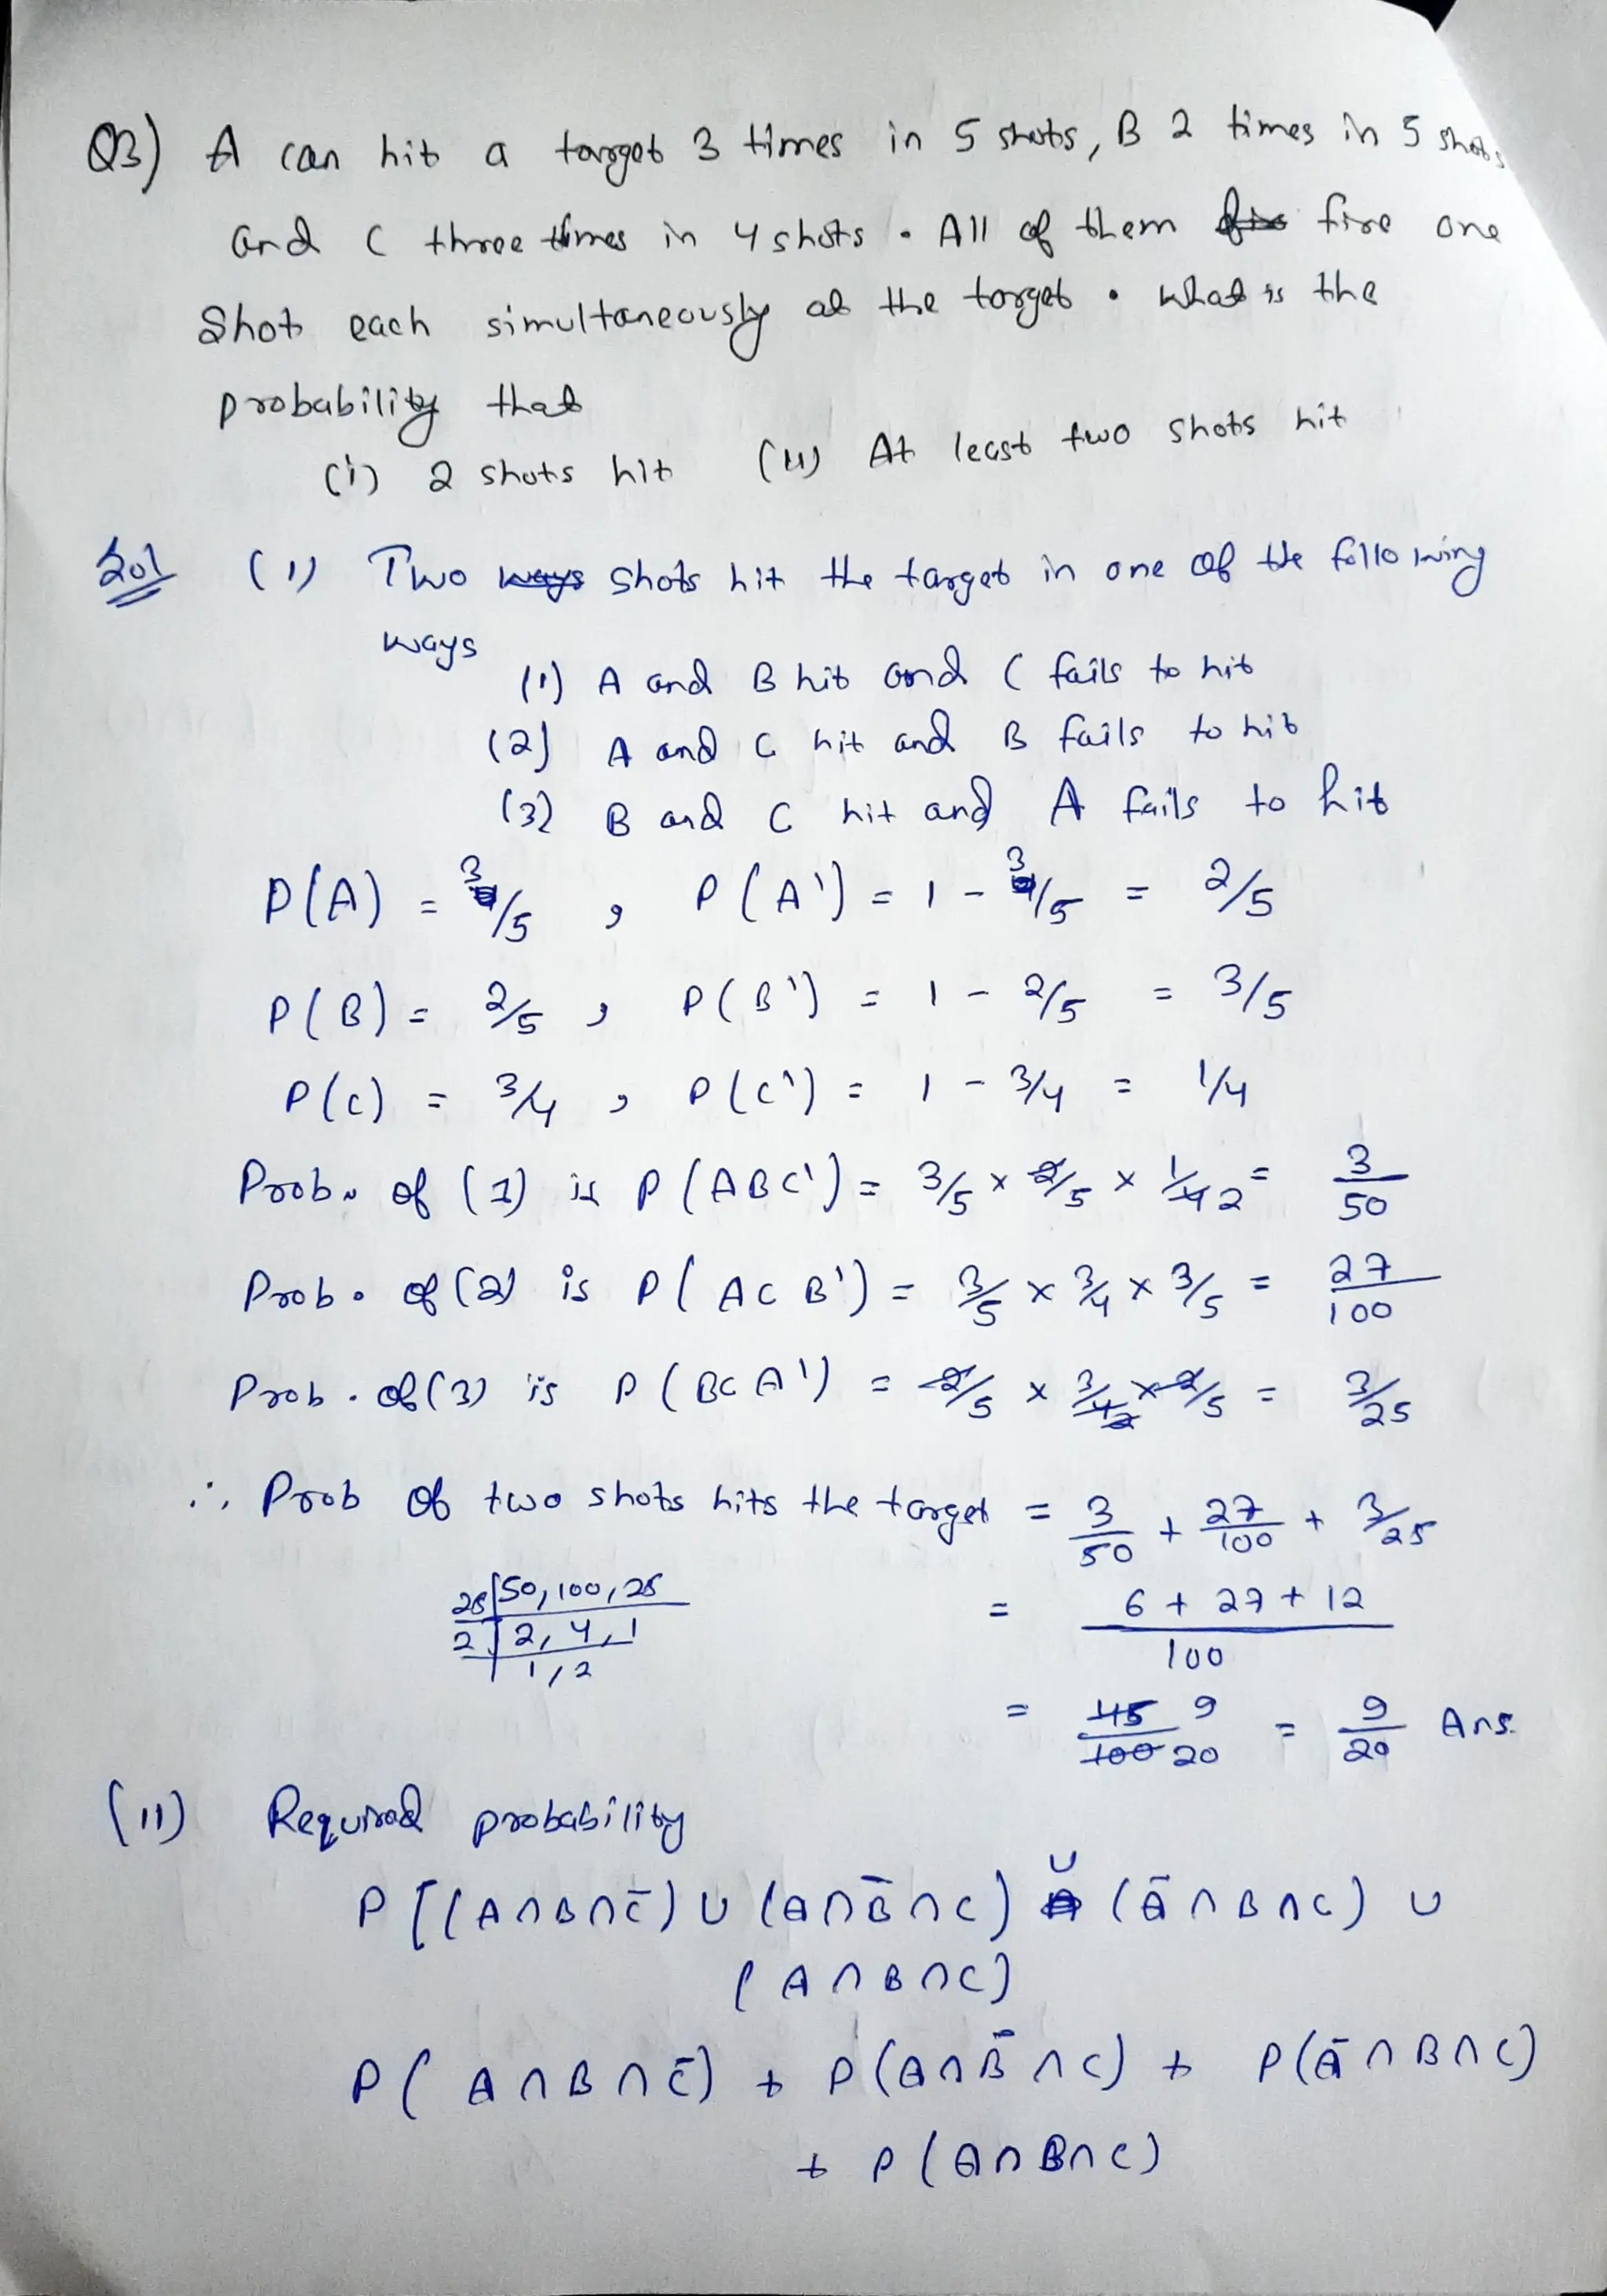 Q3) A can hit a target 3 times in 5 shots, B 2 times in 5 shots
and C three times in 4 shots. All of them fire one
Shot each simultaneously at the target. What is the
probability that
(i) 2 shots hit (ii) At least two shots hit
Sol (i) Two shots hit the target in one of the following
ways
(1) A and B hit and C fails to hit
(2) A and C hit and B fails to hit
(3) B and C hit and A fails to hit
P(A) = 3/5 , P(A') = 1 - 3/5 = 2/5
P(B) = 2/5 , P(B') = 1 - 2/5 = 3/5
P(C) = 3/4 , P(C') = 1 - 3/4 = 1/4
Prob. of (1) is P(ABC') = 3/5 × 2/5 × 1/4 2 = 3/50
Prob. of (2) is P(ACB') = 3/5 × 3/4 × 3/5 = 27/100
Prob. of (3) is P(BCA') = 2/5 × 3/4 2 × 2/5 = 3/25
∴ Prob of two shots hits the target = 3/50 + 27/100 + 3/25
25 | 50, 100, 25 = 6 + 27 + 12 / 100
2 | 2, 4, 1
1, 2
= 45 9 / 100 20 = 9/20 Ans.
(ii) Required probability
P[(A∩B∩C̄) ∪ (A∩B̄∩C) ∪ (Ā∩B∩C) ∪
(A∩B∩C)
P(A∩B∩C̄) + P(A∩B̄∩C) + P(Ā∩B∩C)
+ P(A∩B∩C)